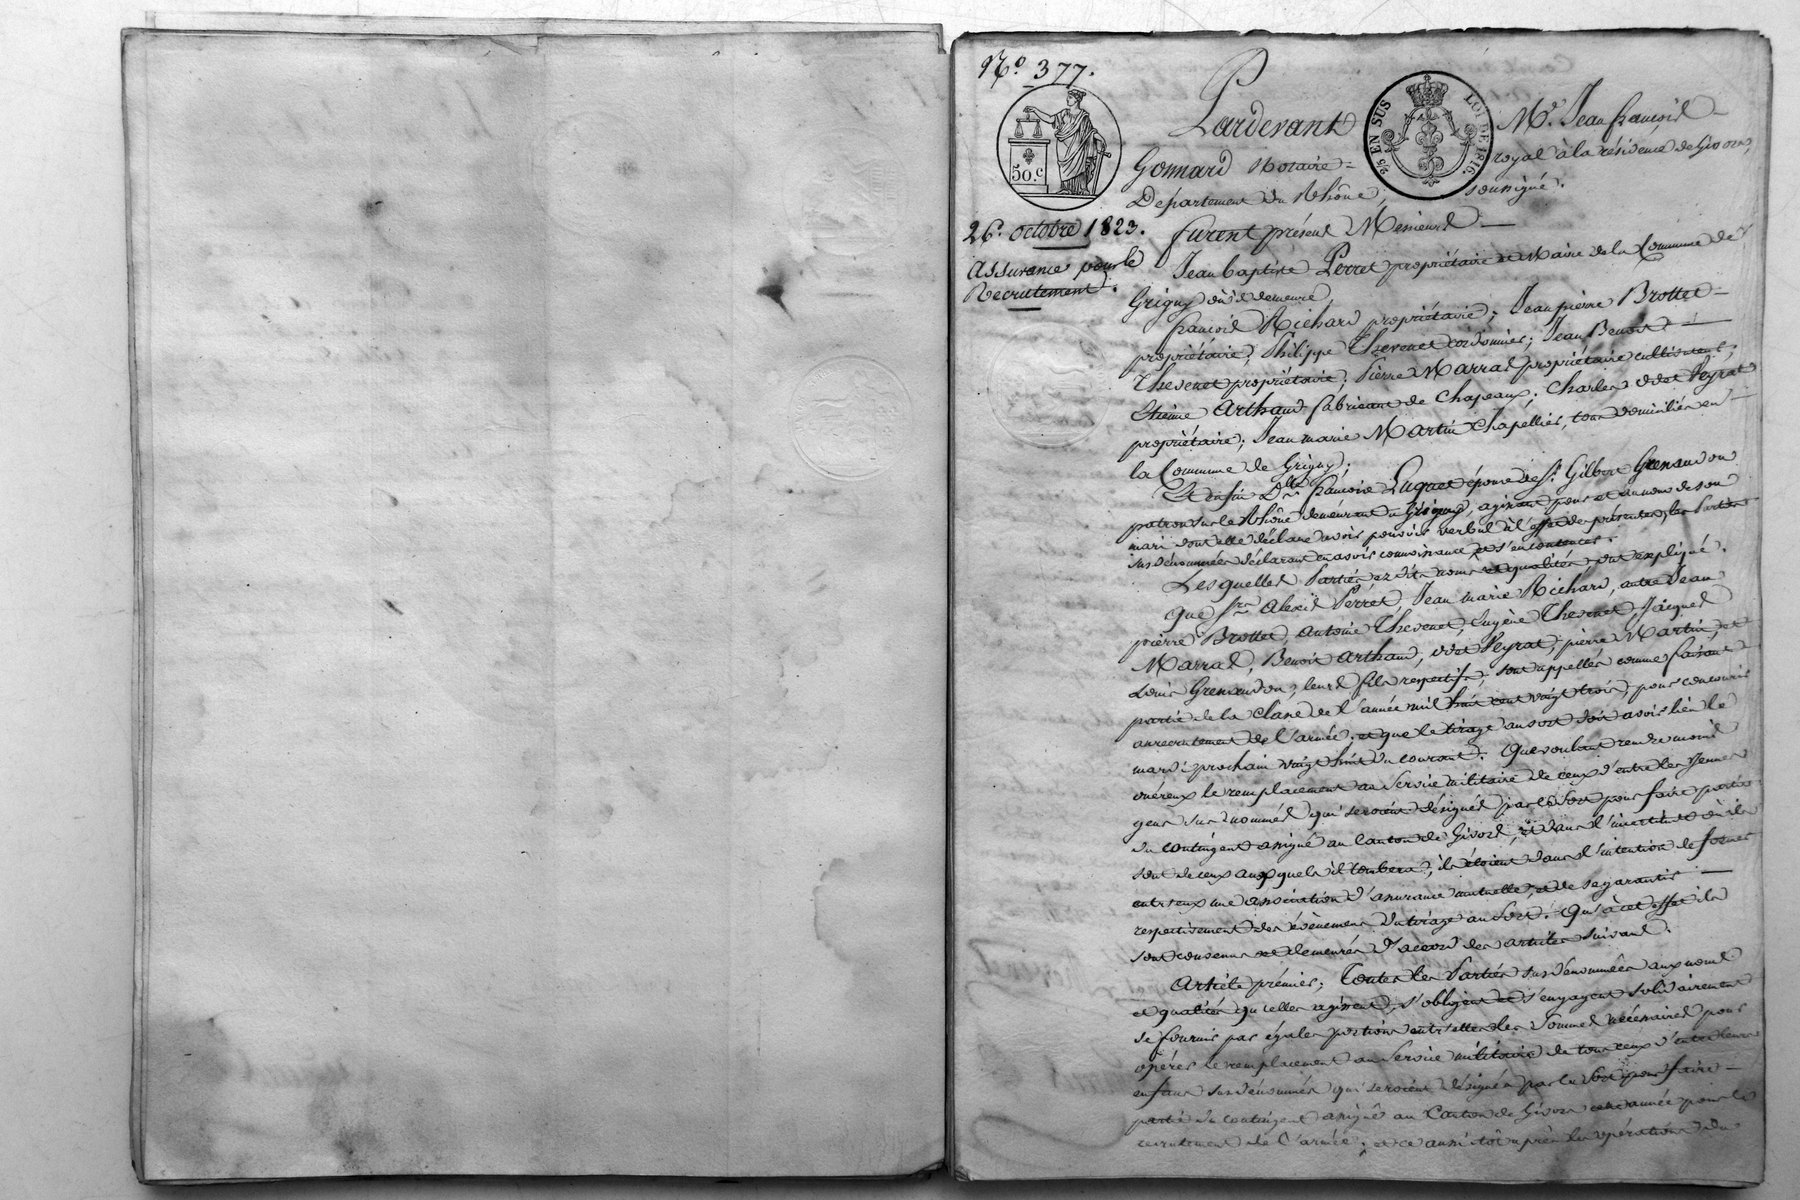 N.º 377.
50.c
2/5 EN SUS
LOI DE 1816.
26. octobre 1823.
assurance pour le
Recrutement.
Pardevant Mr. Jean françois
Gonnard Notaire royal à la résidence de Givors,
Département du Rhône, soussigné.
furent présens Messieurs
Jean baptiste Perret propriétaire et Maire de la Commune de
Grigny où il demeure
françois Richard propriétaire; Jean pierre Brottet
propriétaire; Philippe Thevenet cordonnier; Jean Benoit
Thevenet propriétaire; Pierre Marras propriétaire cultivateur;
Etienne Arthaud fabricant de Chapeaux; Charles Peyrat
propriétaire; Jean marie Martin Chapellier, tous domiciliés en
la Commune de Grigny;
Et enfin Dlle françoise Luquet épouse de Sr Gilbert Grenandon
patron sur le Rhône demeurant à Grigny, agissant pour et au nom de son
mari dont elle déclare avoir pouvoir verbal à l'effet des présentes, les Parties
sus dénommées déclarant en avoir connoissance et s'en contenter.
Lesquelles Parties ez dits noms et qualités, ont expliqué.
Que Srs Alexis Perret, Jean marie Richard, autre Jean
pierre Brottet, antoine Thevenet, Eugène Thevenet, Jacques
Marras, Benoit Arthaud, Peyrat, pierre Martin et
Louis Grenandon, leurs fils respectifs, sont appellés comme faisant
partie de la classe de l'année mil huit cent vingt trois, pour concourir
au recrutement de l'armée, et que le tirage au sort doit avoir lieu le
mardi prochain vingt huit du courant. Que voulant rendre moins
onéreux le remplacement au Service militaire de ceux d'entre les jeunes
gens sus nommés qui seroient désignés par le Sort pour faire partie
du contingent assigné au Canton de Givors, et dans l'incertitude où ils
sont de ceux auxquels il tombera, ils étoient dans l'intention de former
entr'eux une association d'assurance mutuelle, et de se garantir
respectivement des évènemens du tirage au Sort. Qu'à cet effet ils
sont convenus et demeurés d'accord des articles suivans.
Article prémier; Toutes les Parties sus dénommées aux noms
et qualités qu'elles agissent, s'obligent et s'engagent solidairement
de fournir par égales portions entr'elles les Sommes nécessaires pour
opérer le remplacement au Service militaire de tous ceux d'entre leurs
enfans sus dénommés qui seroient désignés par le Sort pour faire
partie du contingent assigné au Canton de Givors cette année pour le
recrutement de l'armée; et ce aussitôt après les opérations du